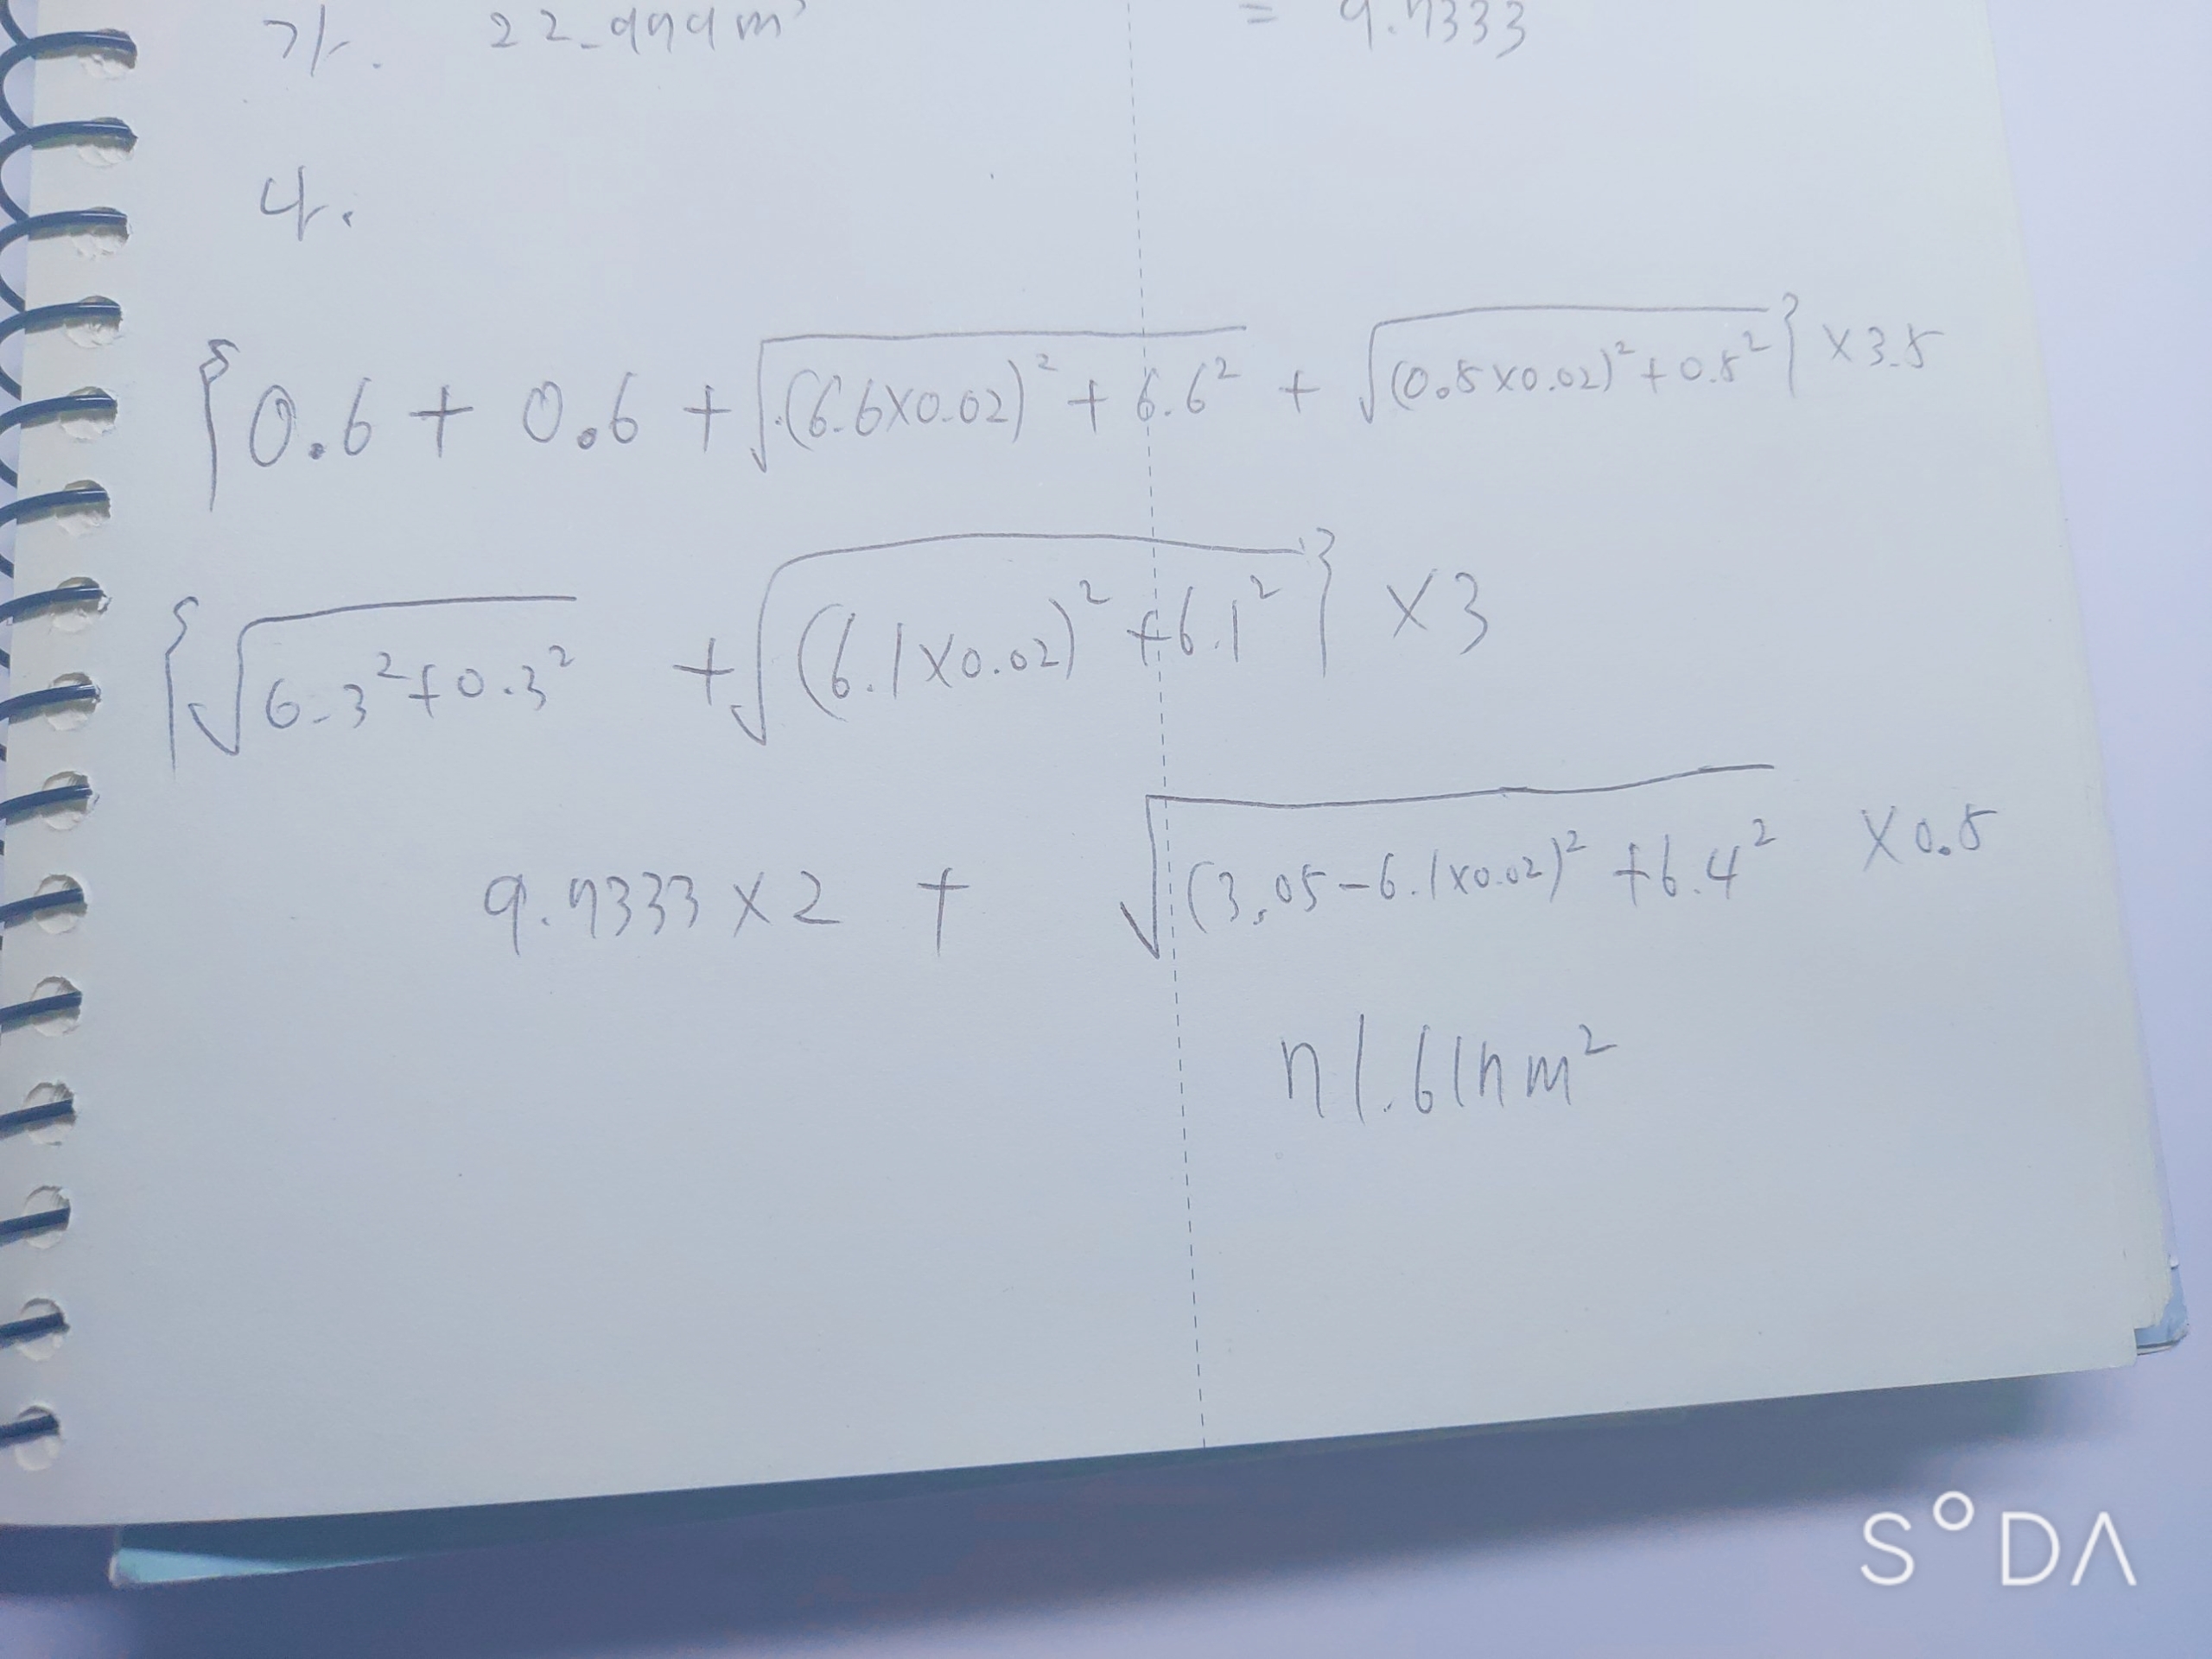 가. 22.979m³ = 9.7333
나.
{0.6 + 0.6 + √(6.6×0.02)² + 6.6² + √(0.5×0.02)² + 0.5²} × 3.5
{√6.3² + 0.3² + √(6.1×0.02)² + 6.1²} × 3
9.7333 × 2 + √(3.05-6.1×0.02)² + 6.4² × 0.5
71.617m²
SODA